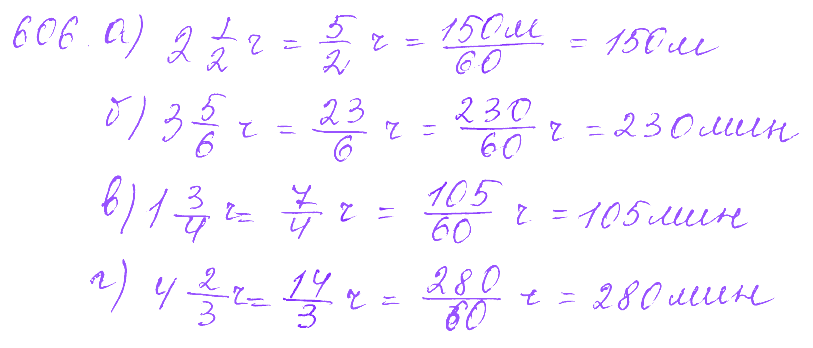 606. а) 2 1/2 ч = 5/2 ч = 150м/60 = 150м
б) 3 5/6 ч = 23/6 ч = 230/60 ч = 230мин
в) 1 3/4 ч = 7/4 ч = 105/60 ч = 105мин
г) 4 2/3 ч = 14/3 ч = 280/60 ч = 280мин